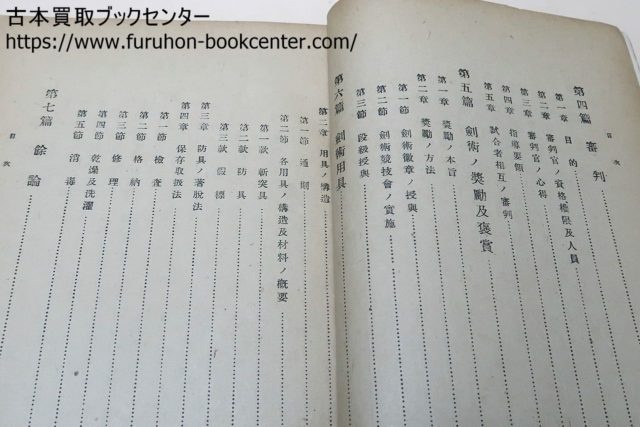 古本買取ブックセンター
https://www.furuhon-bookcenter.com/
目次
第四篇 審判
第一章 目的
第二章 審判官ノ資格權限及人員
第三章 審判官ノ心得
第四章 指導要領
第五章 試合者相互ノ審判
第五篇 劍術ノ奬勵及褒賞
第一章 奬勵ノ本旨
第二章 奬勵ノ方法
第一節 劍術徽章ノ授與
第二節 劍術競技會ノ實施
第三節 段級授與
第六篇 劍術用具
第二章 用具ノ構造
第一節 通則
第二節 各用具ノ構造及材料ノ概要
第一款 斬突具
第二款 防具
第三款 假標
第三章 防具ノ著脫法
第四章 保存取扱法
第一節 檢査
第二節 格納
第三節 修理
第四節 乾燥及洗濯
第五節 消毒
第七篇 餘論
目次